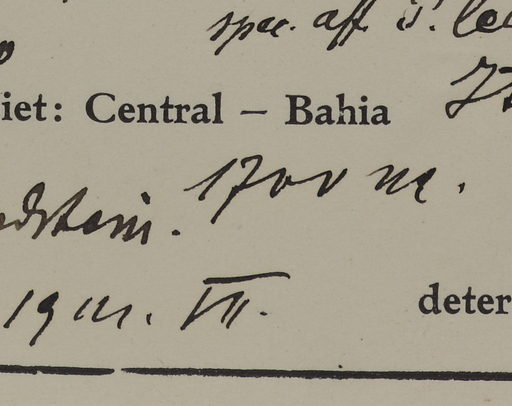 spec. aff. S.
iet: Central – Bahia
dstein. 1700 m.
VII. deter